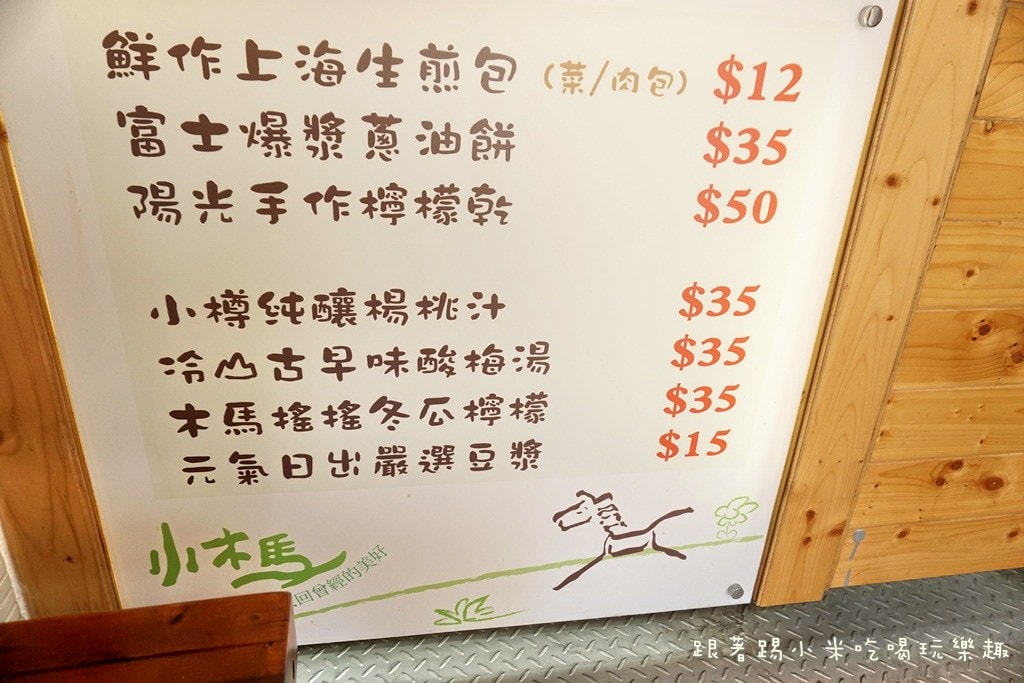 鮮作上海生煎包 (菜/肉包) $12
富士爆漿蔥油餅 $35
陽光手作檸檬乾 $50
小樽純釀楊桃汁 $35
冷山古早味酸梅湯 $35
木馬搖搖冬瓜檸檬 $35
元氣日出嚴選豆漿 $15
小木馬
回曾經的美好
跟著踢小米吃喝玩樂趣